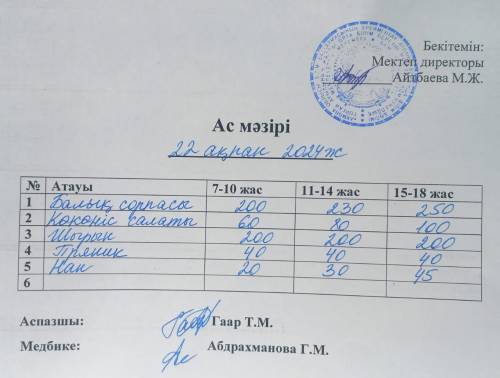 Бекітемін:
Мектеп директоры
Айтбаева М.Ж.
Ас мәзірі
22 ақпан 2024ж
№ Атауы 7-10 жас 11-14 жас 15-18 жас
1 Балық сорпасы 200 230 250
2 Көкөніс салаты 60 80 100
3 Шырын 200 200 200
4 Пряник 40 40 40
5 Нан 20 30 45
6
Аспазшы: Гаар Т.М.
Медбике: Абдрахманова Г.М.